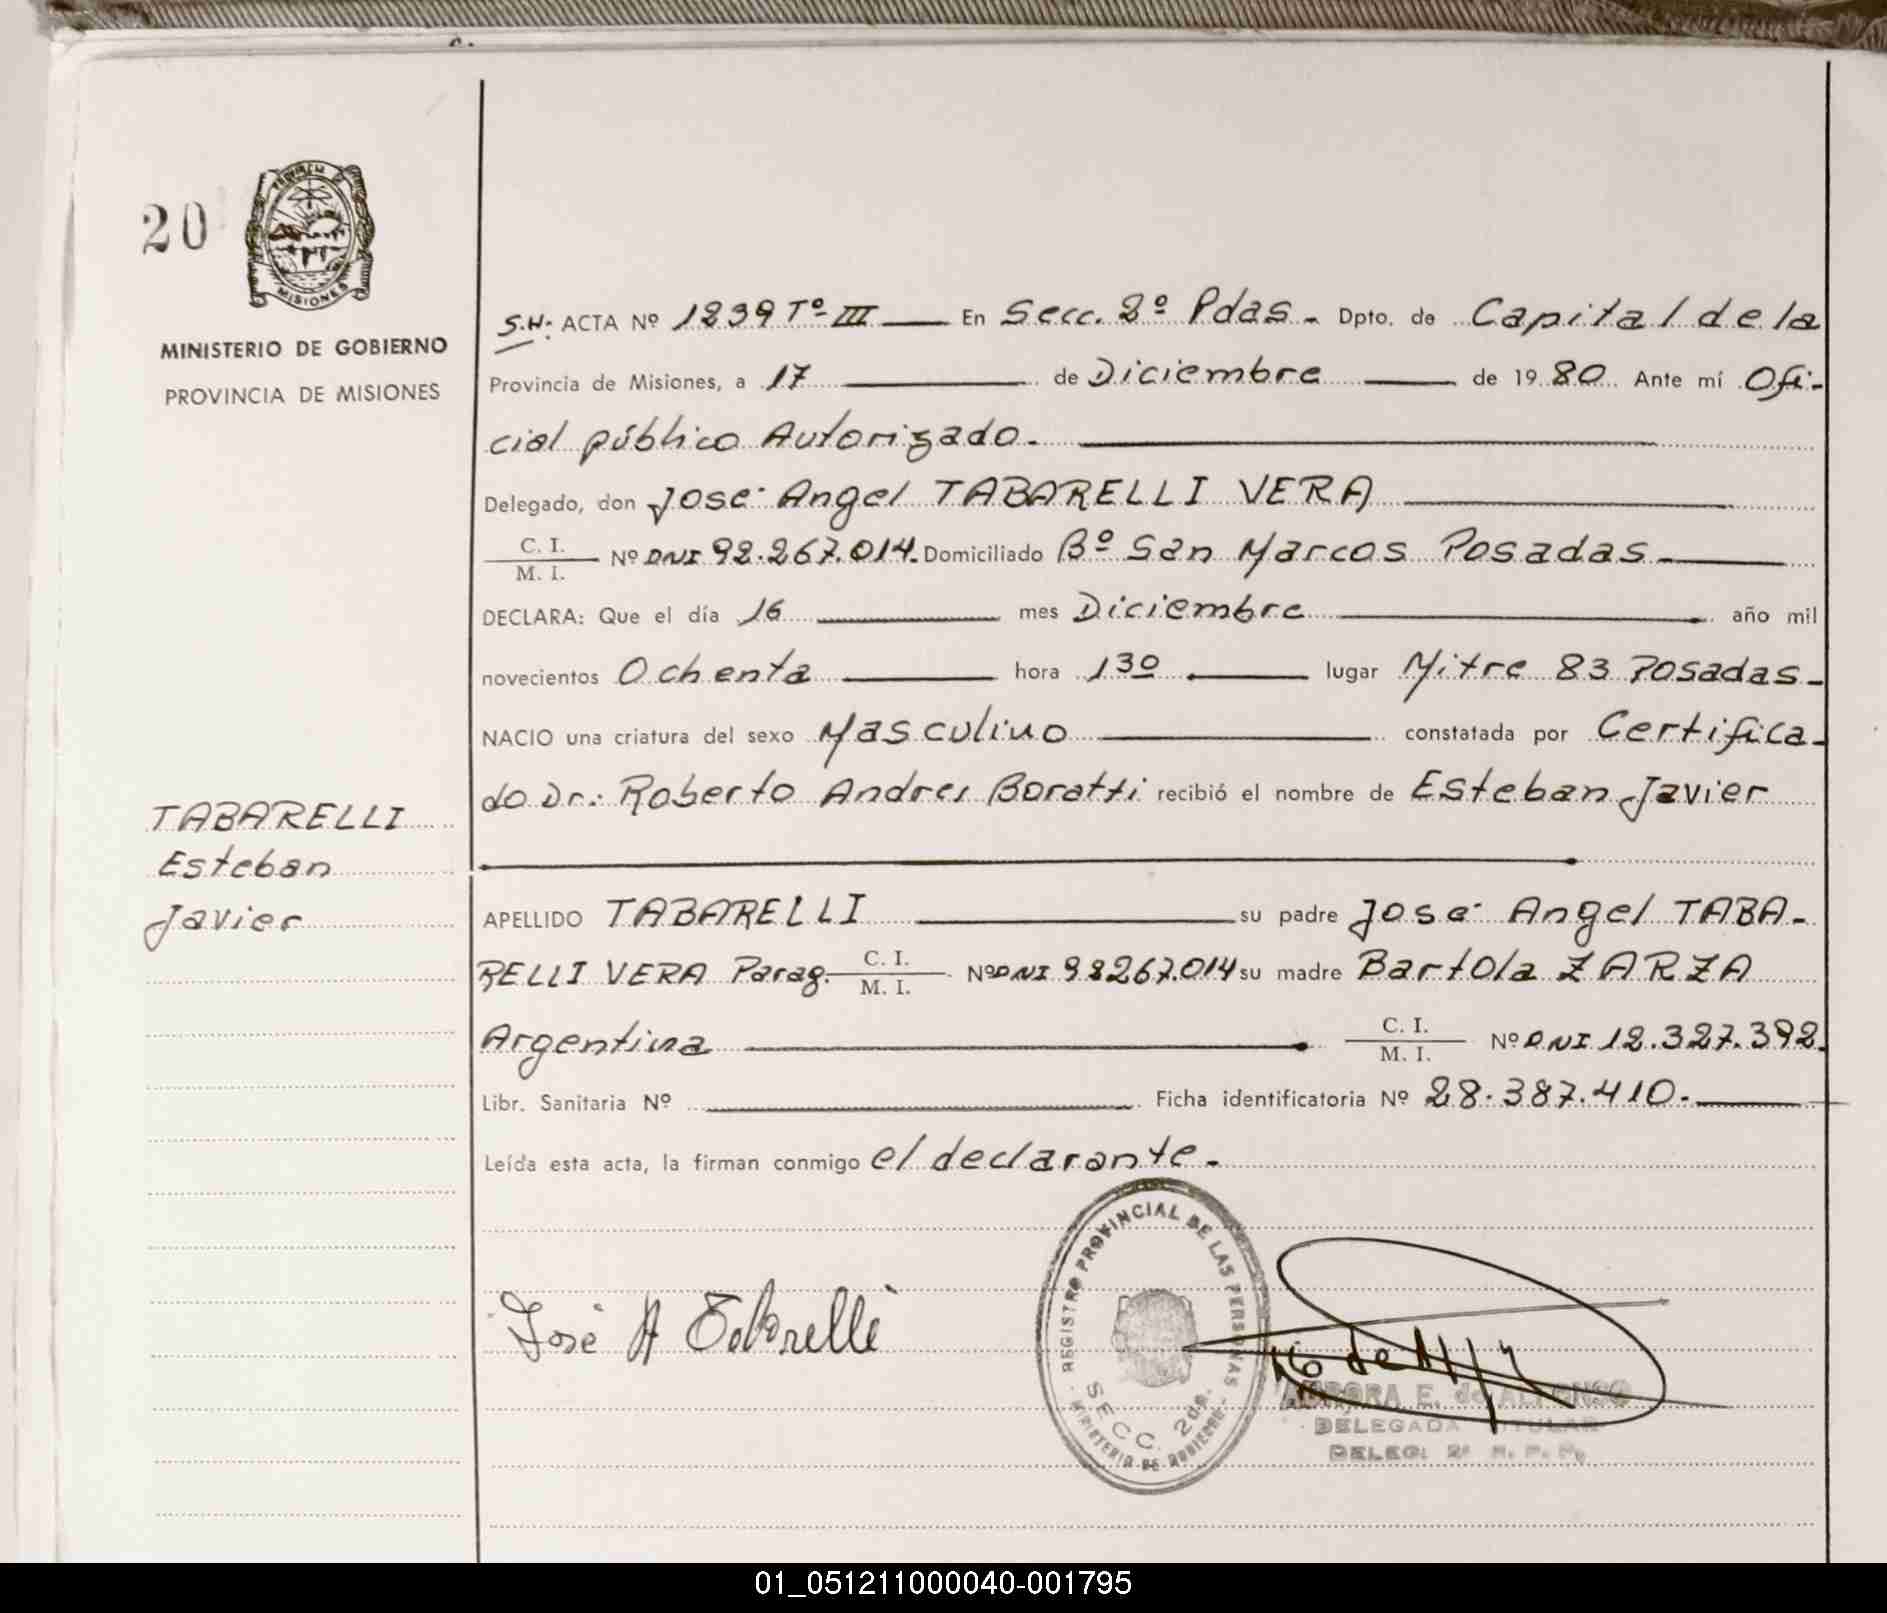 20
PROVINCIA
MISIONES
MINISTERIO DE GOBIERNO
PROVINCIA DE MISIONES
S.H: ACTA Nº 1239 Tº III En Secc. 2º Pdas. Dpto. de Capital de la
Provincia de Misiones, a 17 de Diciembre de 1980 Ante mí Ofi-
cial público Autorizado.
Delegado, don José Angel TABARELLI VERA
C. I.
M. I. Nº DNI 92.267.014. Domiciliado Bº San Marcos Posadas
DECLARA: Que el día 16 mes Diciembre año mil
novecientos Ochenta hora 13º lugar Mitre 83 Posadas
NACIO una criatura del sexo Masculino constatada por Certifica-
do Dr.: Roberto Andres Boratti recibió el nombre de Esteban Javier
TABARELLI
Esteban
Javier
APELLIDO TABARELLI su padre José Angel TABA-
RELLI VERA Parag. C. I.
M. I. Nº DNI 92267.014 su madre Bartola ZARZA
Argentina C. I.
M. I. Nº DNI 12.327.392.
Libr. Sanitaria Nº Ficha identificatoria Nº 28.387.410.
Leída esta acta, la firman conmigo el declarante.
REGISTRO PROVINCIAL DE LAS PERSONAS
SECC. 2da.
MINISTERIO DE GOBIERNO
José A Tabarelli
AURORA E. de ALFONSO
DELEGADA TITULAR
DELEG. 2ª R. P. P.
01_051211000040-001795